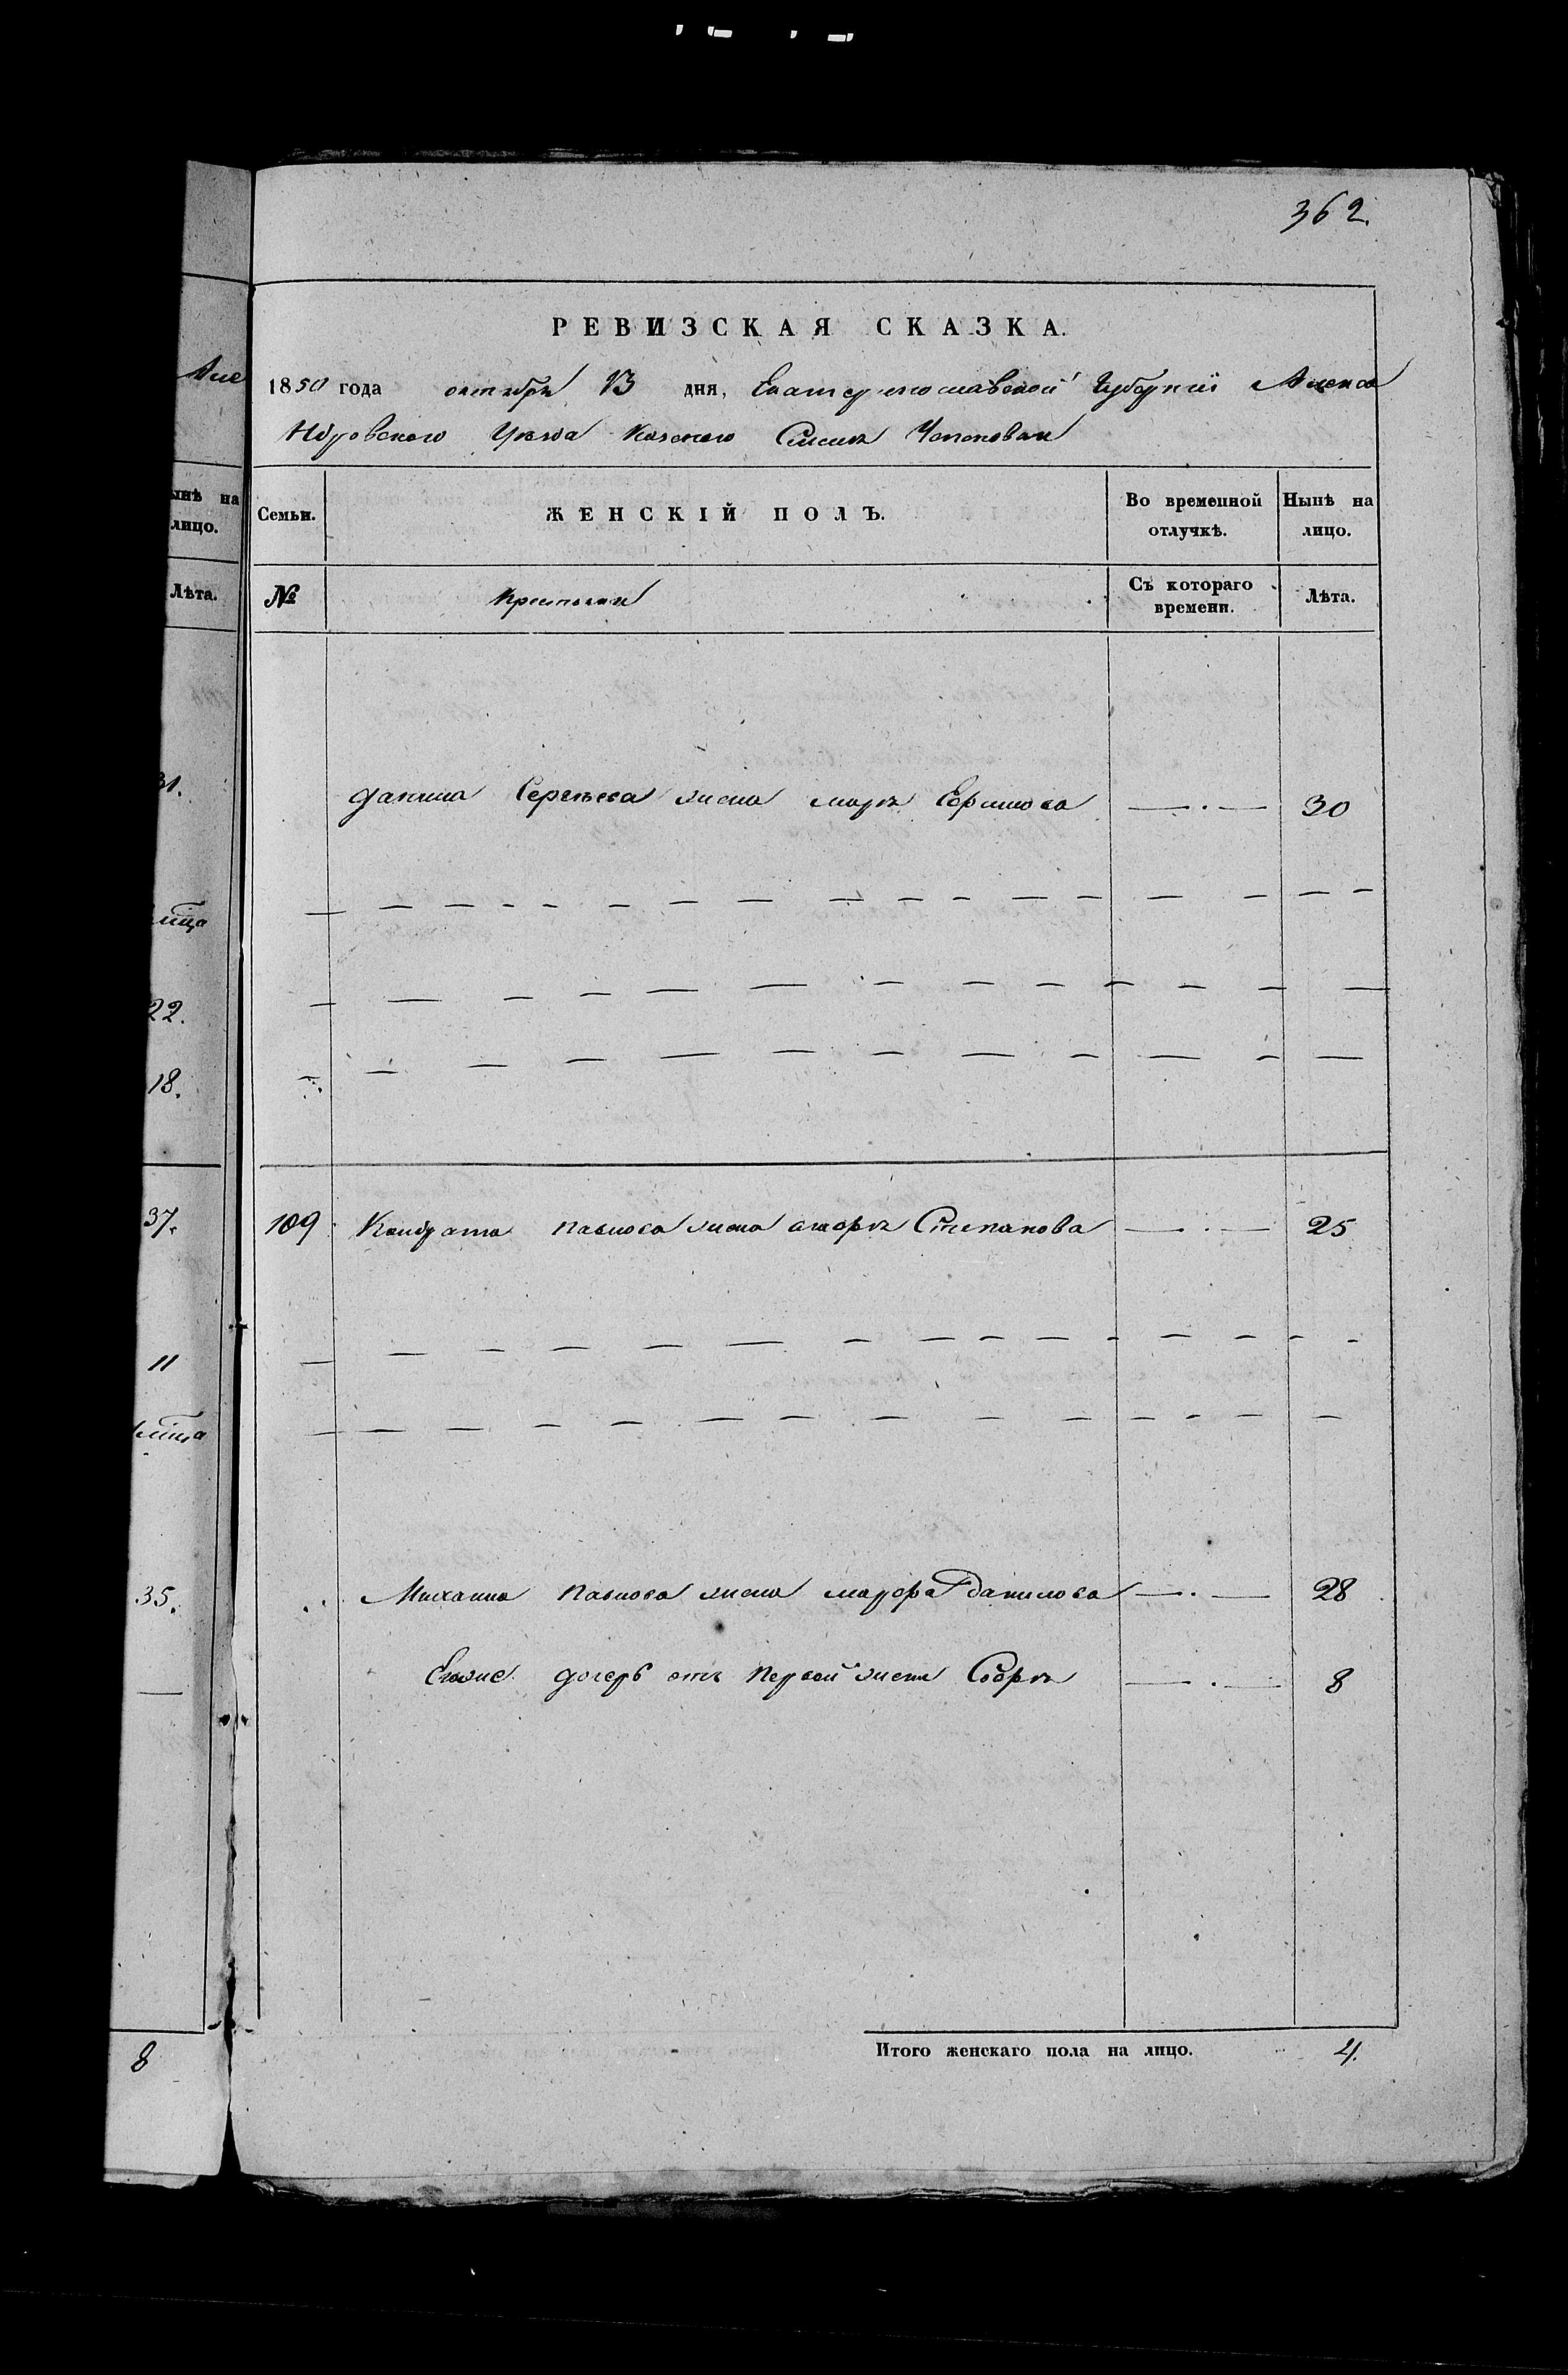 362.
РЕВИЗСКАЯ СКАЗКА.
1850 года октября 13 дня, Екатеринославской Губернiи Алекса
ндровского Уезда Казеного Селенія
Семьи. ЖЕНСКІЙ ПОЛЪ. Во временной отлучкѣ. Нынѣ на лицо.
№ Крестьяне Съ котораго времени. Лѣта.
данила Сергѣева жена марія Ефимова — . — 30
109 Кондрата павлова жена Степанова — . — 25
Михаила павлова жена данилова — . — 28
Егоже дочерь отъ Первой жены — . — 8
Итого женскаго пола на лицо. 4.
Але
ынѣ на
лицо.
Лѣта.
31.
22.
18.
37.
11
35.
8